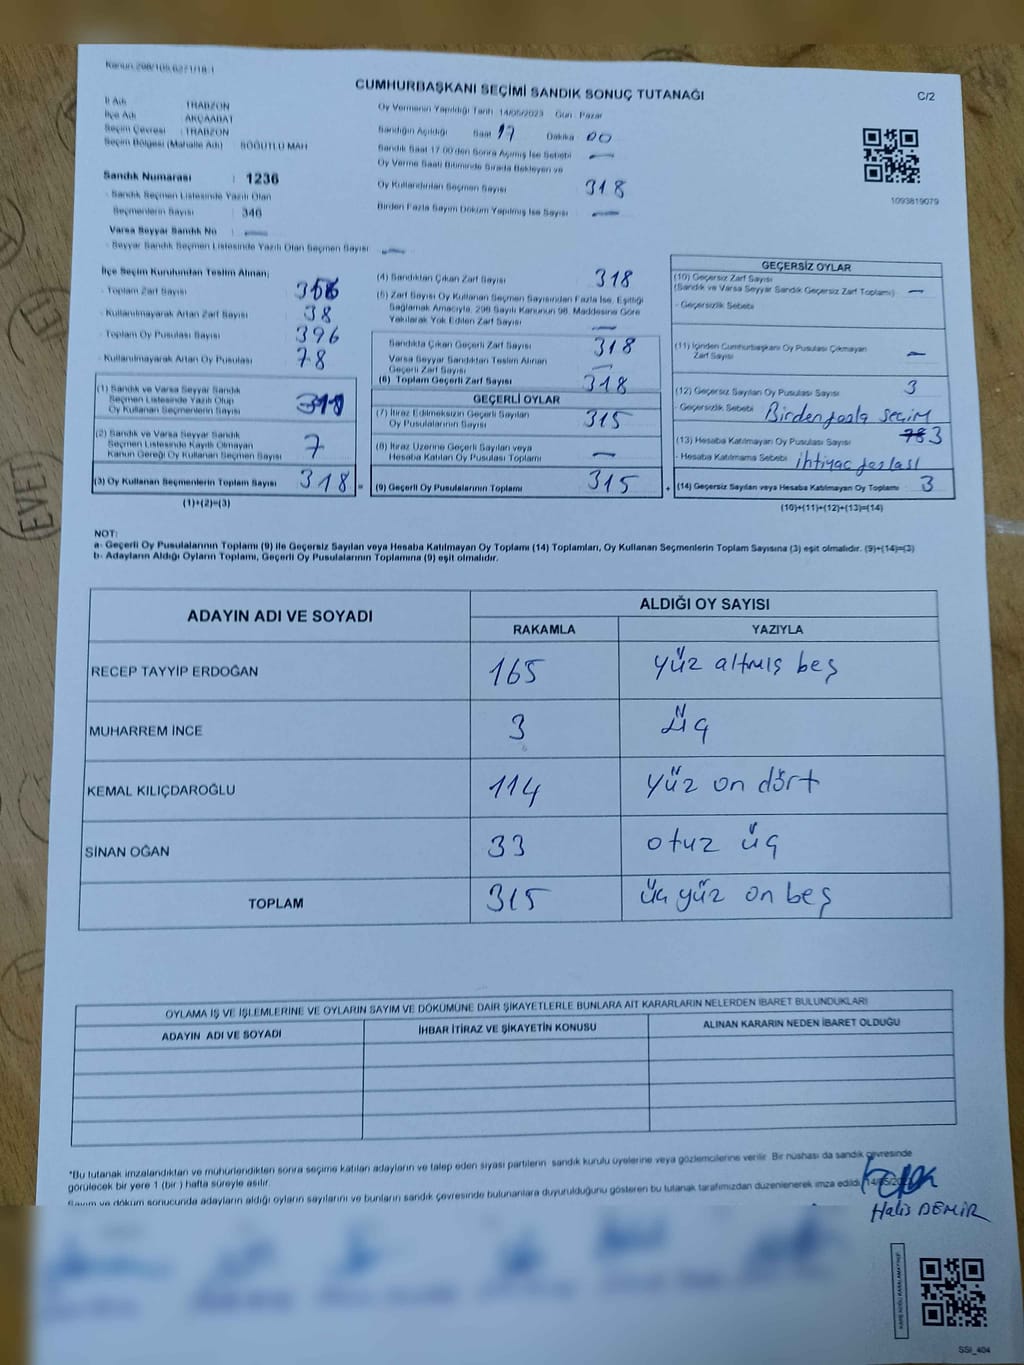 Kanun:298/105,6271/18-1
CUMHURBAŞKANI SEÇİMİ SANDIK SONUÇ TUTANAĞI
C/2
İl Adı TRABZON
İlçe Adı AKÇAABAT
Seçim Çevresi : TRABZON
Seçim Bölgesi (Mahalle Adı) SÖĞÜTLÜ MAH
Sandık Numarası : 1236
- Sandık Seçmen Listesinde Yazılı Olan
Seçmenlerin Sayısı : 346
Varsa Seyyar Sandık No : —
- Seyyar Sandık Seçmen Listesinde Yazılı Olan Seçmen Sayısı —
Oy Vermenin Yapıldığı Tarih 14/05/2023 Gün : Pazar
Sandığın Açıldığı Saat 17 Dakika 00
Sandık Saat 17.00'den Sonra Açılmış İse Sebebi —
Oy Verme Saati Bitiminde Sırada Bekleyen ve
Oy Kullandırılan Seçmen Sayısı 318
Birden Fazla Sayım Döküm Yapılmış İse Sayısı —
1093819079
İlçe Seçim Kurulundan Teslim Alınan;
- Toplam Zarf Sayısı
- Kullanılmayarak Artan Zarf Sayısı 38
- Toplam Oy Pusulası Sayısı 396
- Kullanılmayarak Artan Oy Pusulası 78
(1) Sandık ve Varsa Seyyar Sandık
Seçmen Listesinde Yazılı Olup
Oy Kullanan Seçmenlerin Sayısı
(2) Sandık ve Varsa Seyyar Sandık
Seçmen Listesinde Kayıtlı Olmayan
Kanun Gereği Oy Kullanan Seçmen Sayısı 7
(3) Oy Kullanan Seçmenlerin Toplam Sayısı 318 =
(1)+(2)=(3)
(4) Sandıktan Çıkan Zarf Sayısı 318
(5) Zarf Sayısı Oy Kullanan Seçmen Sayısından Fazla İse, Eşitliği
Sağlamak Amacıyla, 298 Sayılı Kanunun 98. Maddesine Göre
Yakılarak Yok Edilen Zarf Sayısı —
Sandıkta Çıkan Geçerli Zarf Sayısı 318
Varsa Seyyar Sandıktan Teslim Alınan
Geçerli Zarf Sayısı —
(6) Toplam Geçerli Zarf Sayısı 318
GEÇERLİ OYLAR
(7) İtiraz Edilmeksizin Geçerli Sayılan
Oy Pusulalarının Sayısı 315
(8) İtiraz Üzerine Geçerli Sayılan veya
Hesaba Katılan Oy Pusulası Toplamı —
(9) Geçerli Oy Pusulalarının Toplamı 315 +
GEÇERSİZ OYLAR
(10) Geçersiz Zarf Sayısı
(Sandık ve Varsa Seyyar Sandık Geçersiz Zarf Toplamı) —
- Geçersizlik Sebebi
(11) İçinden Cumhurbaşkanı Oy Pusulası Çıkmayan
Zarf Sayısı —
(12) Geçersiz Sayılan Oy Pusulası Sayısı 3
- Geçersizlik Sebebi Birden fazla seçim
(13) Hesaba Katılmayan Oy Pusulası Sayısı 78 3
- Hesaba Katılmama Sebebi ihtiyaç fazlası
(14) Geçersiz Sayılan veya Hesaba Katılmayan Oy Toplamı 3
(10)+(11)+(12)+(13)=(14)
NOT:
a- Geçerli Oy Pusulalarının Toplamı (9) ile Geçersiz Sayılan veya Hesaba Katılmayan Oy Toplamı (14) Toplamları, Oy Kullanan Seçmenlerin Toplam Sayısına (3) eşit olmalıdır. (9)+(14)=(3)
b- Adayların Aldığı Oyların Toplamı, Geçerli Oy Pusulalarının Toplamına (9) eşit olmalıdır.
ADAYIN ADI VE SOYADI
ALDIĞI OY SAYISI
RAKAMLA YAZIYLA
RECEP TAYYİP ERDOĞAN 165 yüz altmış beş
MUHARREM İNCE 3 üç
KEMAL KILIÇDAROĞLU 114 yüz on dört
SİNAN OĞAN 33 otuz üç
TOPLAM 315 üç yüz on beş
OYLAMA İŞ VE İŞLEMLERİNE VE OYLARIN SAYIM VE DÖKÜMÜNE DAİR ŞİKAYETLERLE BUNLARA AİT KARARLARIN NELERDEN İBARET BULUNDUKLARI
ADAYIN ADI VE SOYADI İHBAR İTİRAZ VE ŞİKAYETİN KONUSU ALINAN KARARIN NEDEN İBARET OLDUĞU
*Bu tutanak imzalandıktan ve mühürlendikten sonra seçime katılan adayların ve talep eden siyasi partilerin sandık kurulu üyelerine veya gözlemcilerine verilir. Bir nüshası da sandık çevresinde
görülecek bir yere 1 (bir) hafta süreyle asılır.
Sayım ve döküm sonucunda adayların aldığı oyların sayılarını ve bunların sandık çevresinde bulunanlara duyurulduğunu gösteren bu tutanak tarafımızdan düzenlenerek imza edildi.
Halis DEMİR
SSI_404
EVET